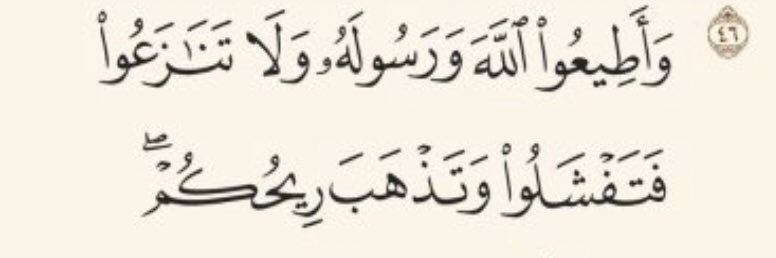 ٤٦ وَأَطِيعُوا۟ ٱللَّهَ وَرَسُولَهُۥ وَلَا تَنَـٰزَعُوا۟
فَتَفْشَلُوا۟ وَتَذْهَبَ رِيحُكُمْ ۖ